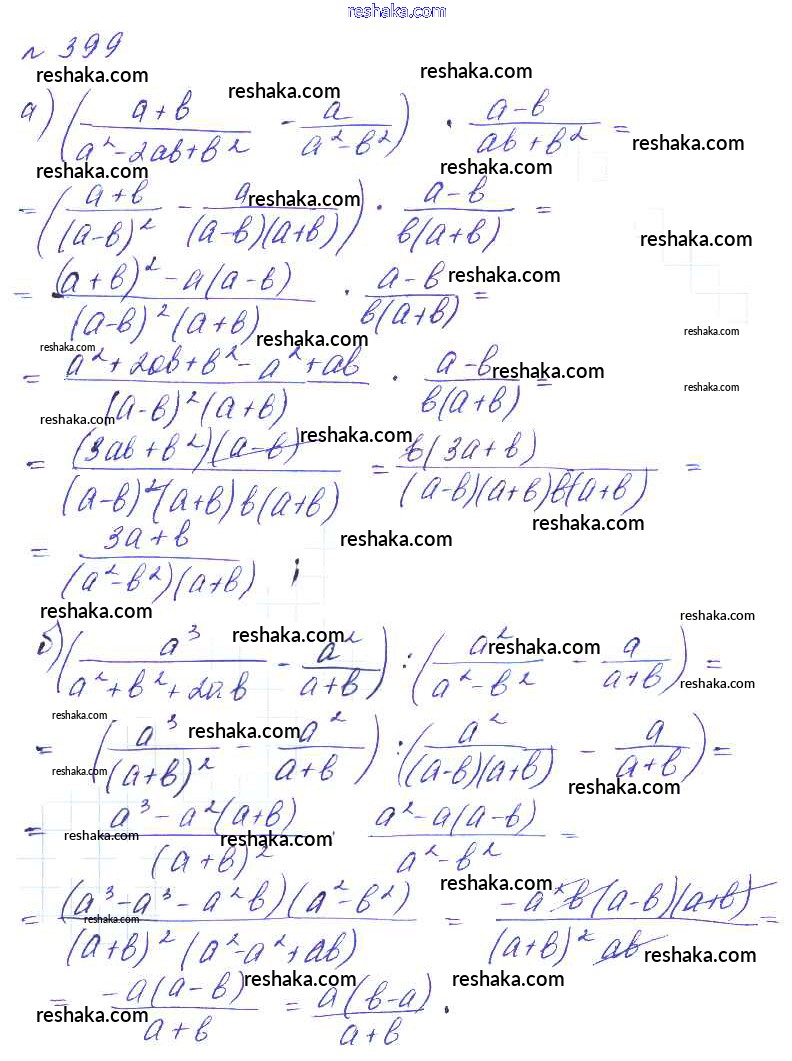 reshaka.com
№ 399
reshaka.com reshaka.com reshaka.com
а) ((a+b)/(a²-2ab+b²) - a/(a²-b²)) · (a-b)/(ab+b²) =
reshaka.com
reshaka.com reshaka.com
= ((a+b)/(a-b)² - a/((a-b)(a+b))) · (a-b)/(b(a+b)) =
reshaka.com
reshaka.com
= ((a+b)² - a(a-b))/((a-b)²(a+b)) · (a-b)/(b(a+b)) =
reshaka.com
reshaka.com
reshaka.com reshaka.com
= (a²+2ab+b²-a²+ab)/((a-b)²(a+b)) · (a-b)/(b(a+b)) =
reshaka.com
reshaka.com
reshaka.com
reshaka.com
= ((3ab+b²)(a-b))/((a-b)²(a+b)b(a+b)) = (b(3a+b))/((a-b)(a+b)b(a+b)) =
reshaka.com
= (3a+b)/((a²-b²)(a+b)) ;
reshaka.com
reshaka.com
reshaka.com
reshaka.com reshaka.com
б) (a³/(a²+b²+2ab) - a²/(a+b)) : (a²/(a²-b²) - a/(a+b)) =
reshaka.com
reshaka.com
reshaka.com
= (a³/(a+b)² - a²/(a+b)) : (a²/((a-b)(a+b)) - a/(a+b)) =
reshaka.com
reshaka.com
= (a³ - a²(a+b))/(a+b)² : (a² - a(a-b))/(a²-b²) =
reshaka.com reshaka.com
reshaka.com
= ((a³-a³-a²b)(a²-b²))/((a+b)²(a²-a²+ab)) = (-a²b(a-b)(a+b))/((a+b)² ab) =
reshaka.com
reshaka.com
reshaka.com reshaka.com
= (-a(a-b))/(a+b) = (a(b-a))/(a+b) .
reshaka.com reshaka.com